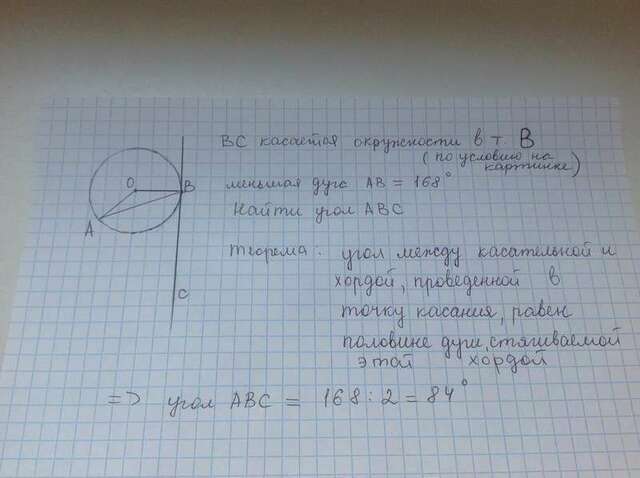 ВС касается окружности в т. В
(по условию на
картинке)
меньшая дуга АВ = 168°
Найти угол АВС
О
В
А
С
Теорема: угол между касательной и
хордой, проведенной в
точку касания, равен
половине дуги, стягиваемой
этой хордой
=> угол АВС = 168 : 2 = 84°